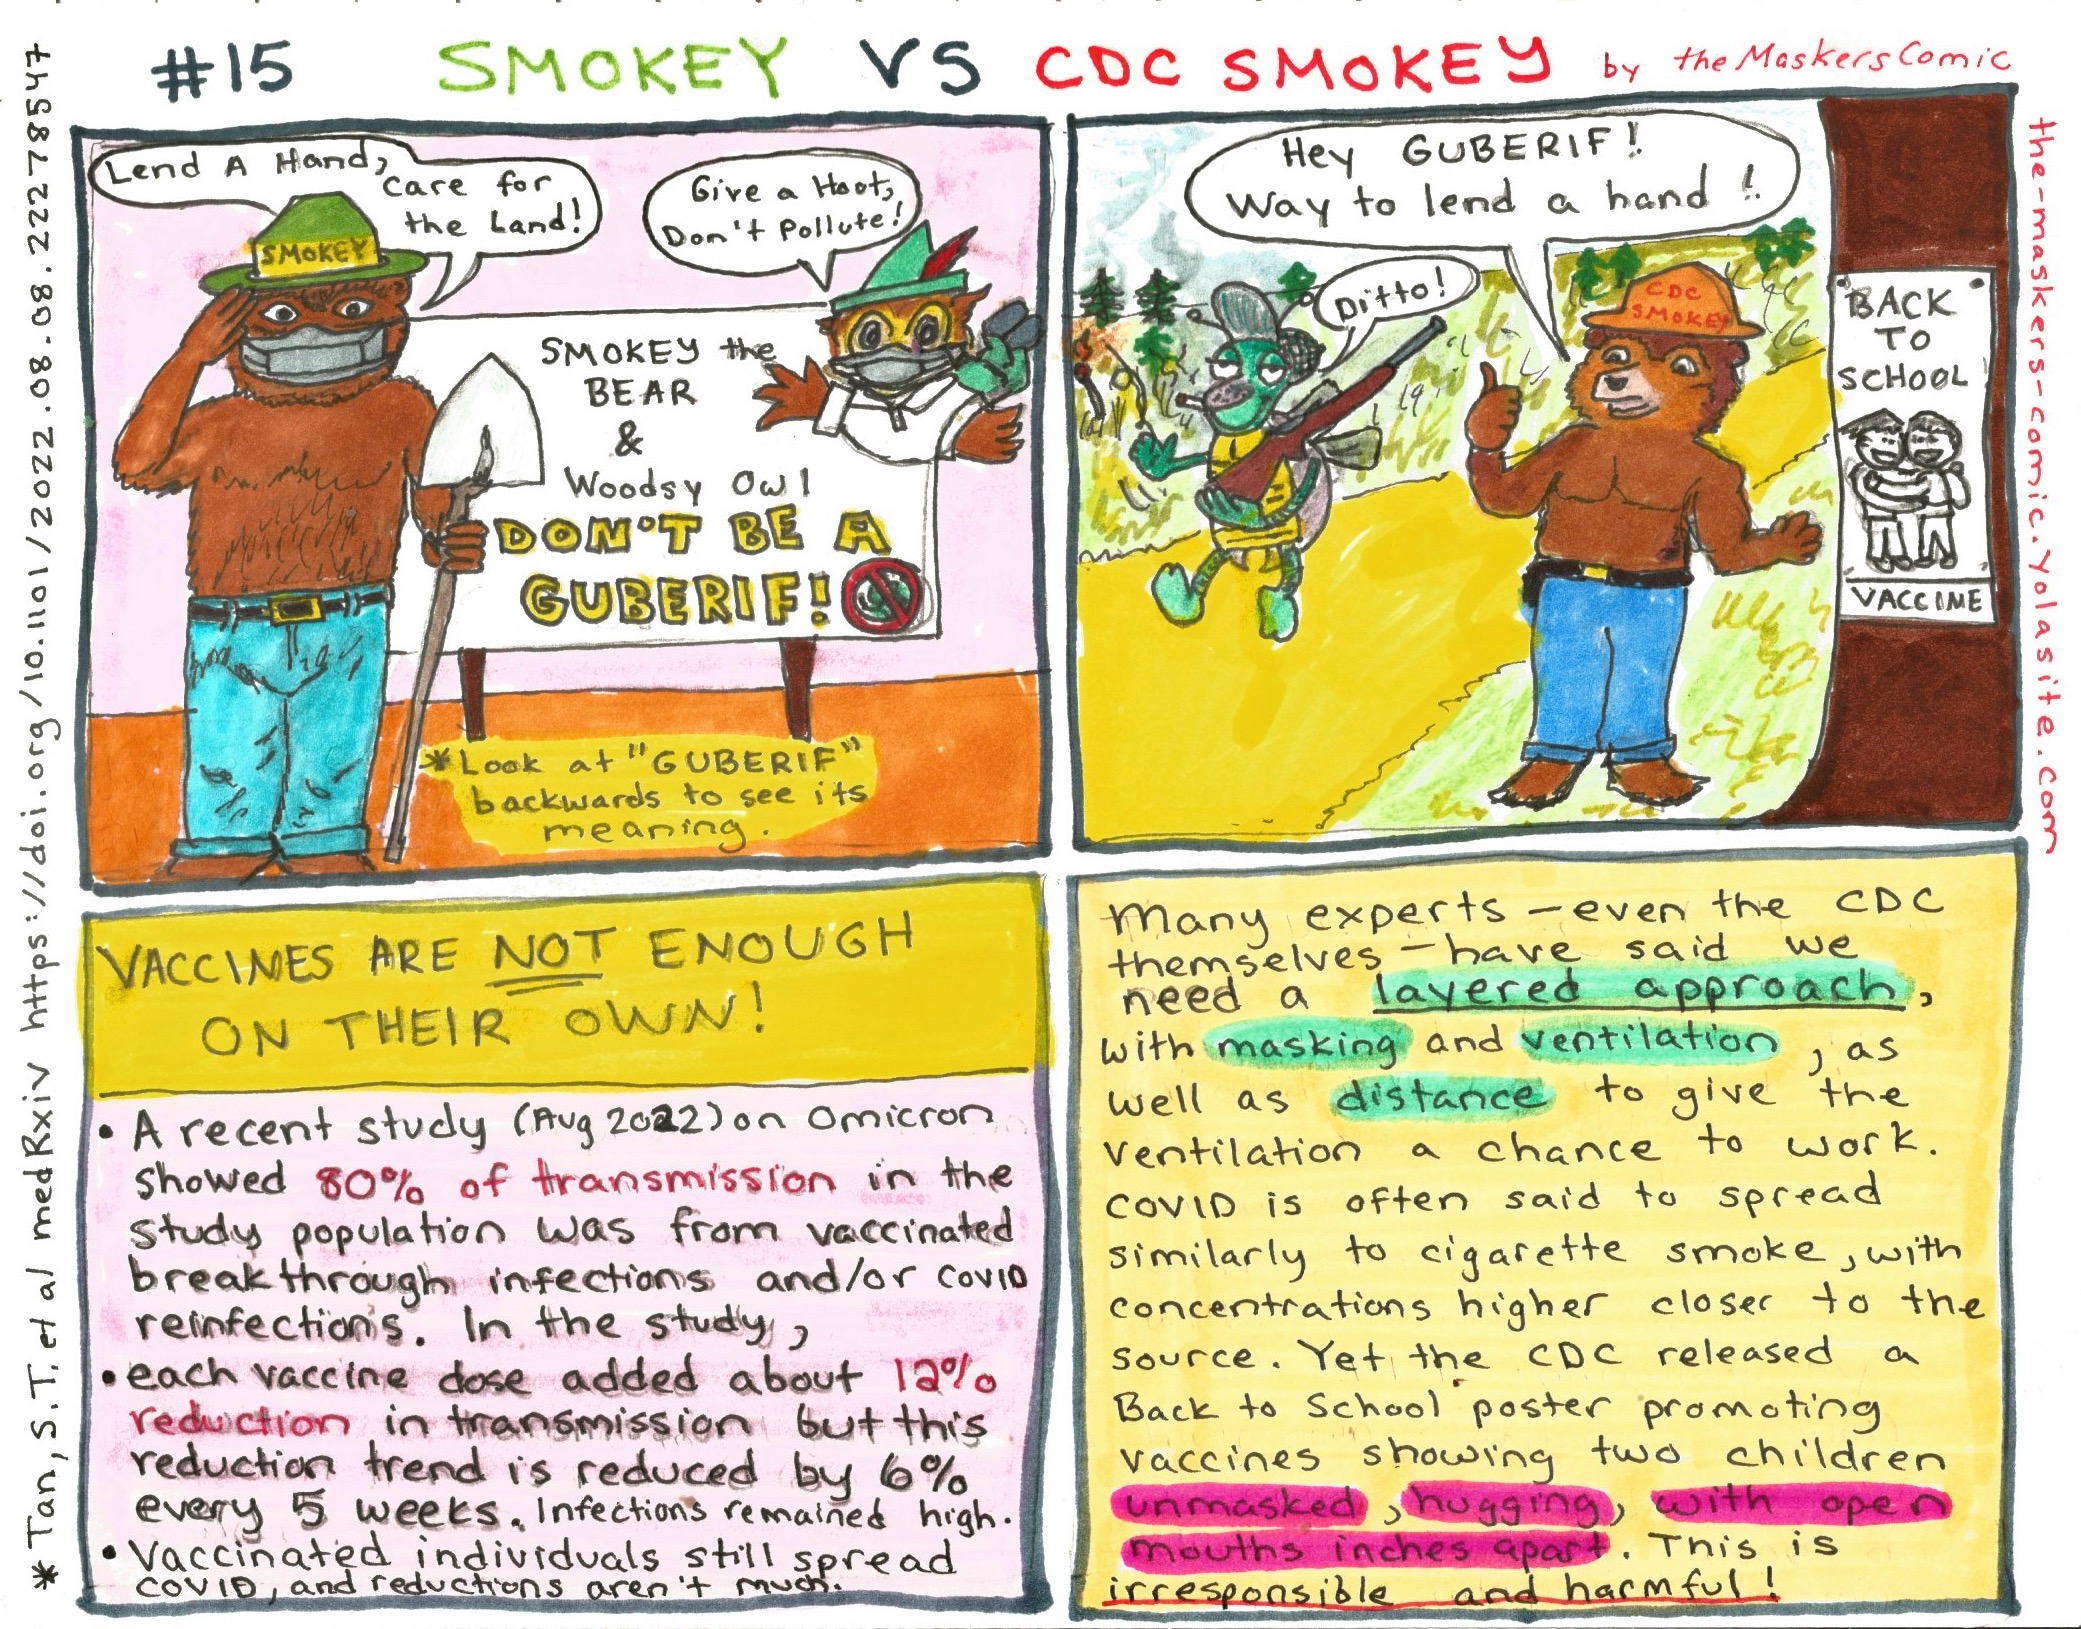 #15 SMOKEY VS CDC SMOKEY by the Maskers Comic
Lend A Hand,
Care for
the Land!
Give a Hoot,
Don't Pollute!
SMOKEY
SMOKEY the
BEAR
&
Woodsy Owl
DON'T BE A
GUBERIF!
*Look at "GUBERIF"
backwards to see its
meaning.
Hey GUBERIF!
Way to lend a hand!!
Ditto!
CDC
SMOKEY
BACK
TO
SCHOOL
VACCINE
VACCINES ARE NOT ENOUGH
ON THEIR OWN!
• A recent study (Aug 2022) on Omicron
showed 80% of transmission in the
study population was from vaccinated
breakthrough infections and/or COVID
reinfections. In the study,
• each vaccine dose added about 12%
reduction in transmission but this
reduction trend is reduced by 6%
every 5 weeks. Infections remained high.
• Vaccinated individuals still spread
COVID, and reductions aren't much.
Many experts - even the CDC
themselves - have said we
need a layered approach,
with masking and ventilation, as
well as distance to give the
ventilation a chance to work.
COVID is often said to spread
similarly to cigarette smoke, with
concentrations higher closer to the
source. Yet the CDC released a
Back to School poster promoting
vaccines showing two children
unmasked, hugging, with open
mouths inches apart. This is
irresponsible and harmful!
* Tan, S.T. et al medRxiv https://doi.org/10.1101/2022.08.08.22278547
the-maskers-comic.yolasite.com